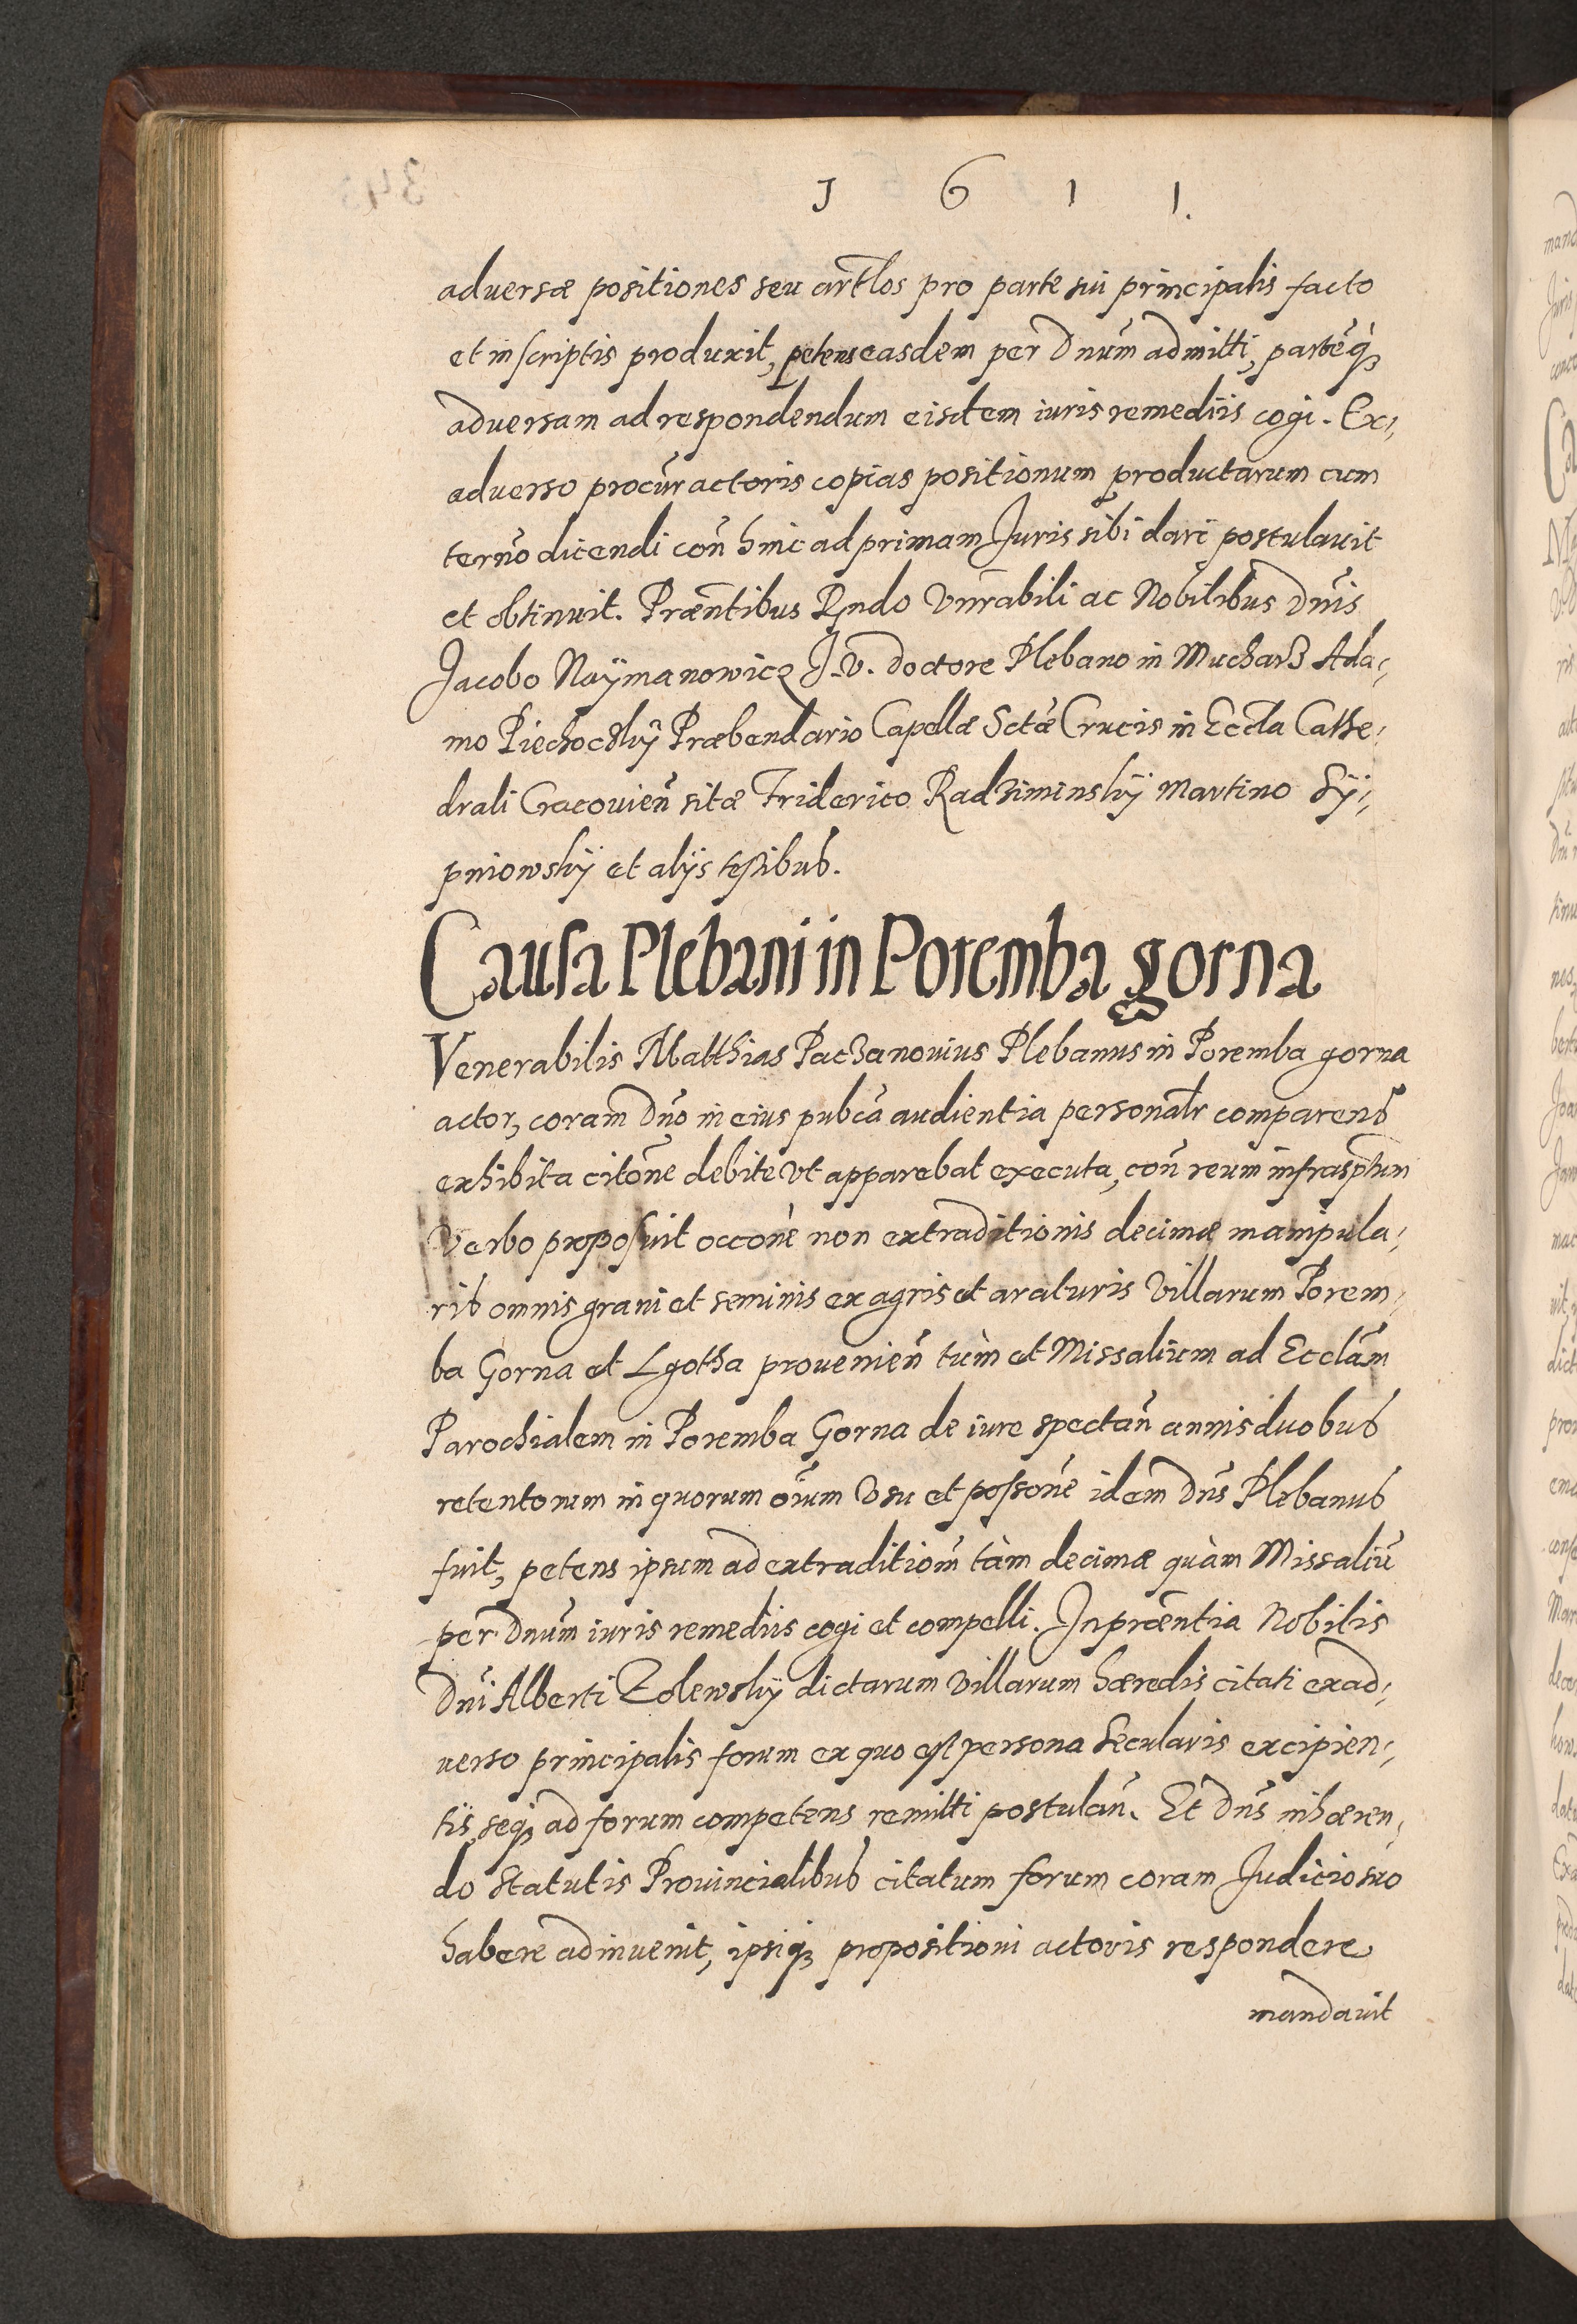 1 6 1 1.
adversæ positiones seu artlos pro parte sui principalis facto
et in scriptis produxit, petens easdem per Dnum admitti, partẽq3
adversam ad respondendum eisdem iuris remediis cogi. Ex⸗
adverso procur̃ actoris copias positionum productarum cum
terño dicendi coñ hinc ad primam Juris sibi dari postulavit
et obtinuit. Præñtibus Rndo Vnrabili ac Nobilibus Dnis
Jacobo Naÿmanowicz J. V. doctore Plebano in Mucharz Ada⸗
mo Piechoczkÿ Præbendario Capellæ Sctæ Crucis in Eccla Cathe⸗
drali Cracovieñ sitæ Friderico Radziminskÿ Martino Sÿ⸗
pniowskÿ et alijs testibus.
Causa Plebani in Poremba gorna
Venerabilis Matthias Paczanovius Plebanus in Poremba gorna
actor, coram Dño in eius pubca audientia personalr comparens
exhibita citõne debite vt apparebat executa, coñ reum infrasptum
Verbo proposuit occõne non extraditionis decimæ manipula⸗
ris omnis grani et seminis ex agris et araturis Villarum Porem⸗
ba Gorna et Lgotha provenieñ tum et Missalium ad Ecclam
Parochialem in Poremba Gorna de iure spectañ annis duobus
retentorum in quorum oĩum Vsu et possõne idem Dns Plebanus
fuit, petens ipsum ad extraditioñ tàm decimæ quàm Missaliũ
per Dnum iuris remediis cogi et compelli. In præñtia Nobilis
Dni Alberti Zolewskÿ dictarum Villarum hæredis citati exad⸗
verso principalis forum ex quo est persona secularis excipien⸗
tis, seq3 ad forum competens remitti postulañ. Et Dns inhæren⸗
do statutis Provincialibus citatum forum coram Judicio suo
habere adinvenit, ipsiq3 propositioni actoris respondere
mandavit